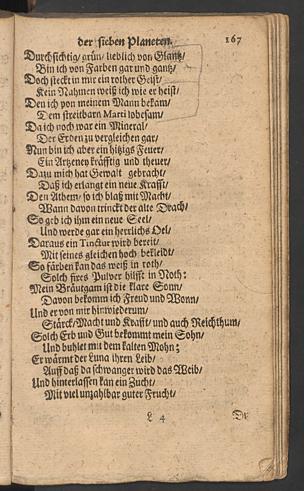 der sieben Planeten. 167
Durchsichtig/ grün/ lieblich von Glantz/
Bin ich von Farben gar und gantz/
Doch steckt in mir ein rother Geist/
Kein Nahmen weiß ich wie er heist/
Den ich von meinem Mann bekam/
Dem streitbarn Marti lobesam/
Da ich noch war ein Mineral/
Der Erden zu vergleichen gar/
Nun bin ich aber ein hitzigs Feuer/
Ein Artzeney kräfftig und theuer/
Dazu mich hat Gewalt gebracht/
Daß ich erlangt ein neue Krafft/
Den Athem/ so ich blaß mit Macht/
Wann davon trinckt der alte Drach/
So geb ich ihm ein neue Seel/
Und werde gar ein herrlichs Oel/
Daraus ein Tinctur wird bereit/
Mit seines gleichen hoch bekleidt/
So färben kan das weiß in roth/
Solch fixes Pulver hilfft in Noth:
Mein Bräutgam ist die klare Sonn/
Davon bekomm ich Freud und Wonn/
Und er von mir hinwiederum/
Stärck/ Macht und Krafft/ und auch Reichthum/
Solch Erb und Gut bekommt mein Sohn/
Und buhlet mit dem kalten Mohn;
Er wärmt der Luna ihren Leib/
Auff daß da schwanger wird das Weib/
Und hinterlassen kan ein Zucht/
Mit viel unzahlbar guter Frucht/
L 4